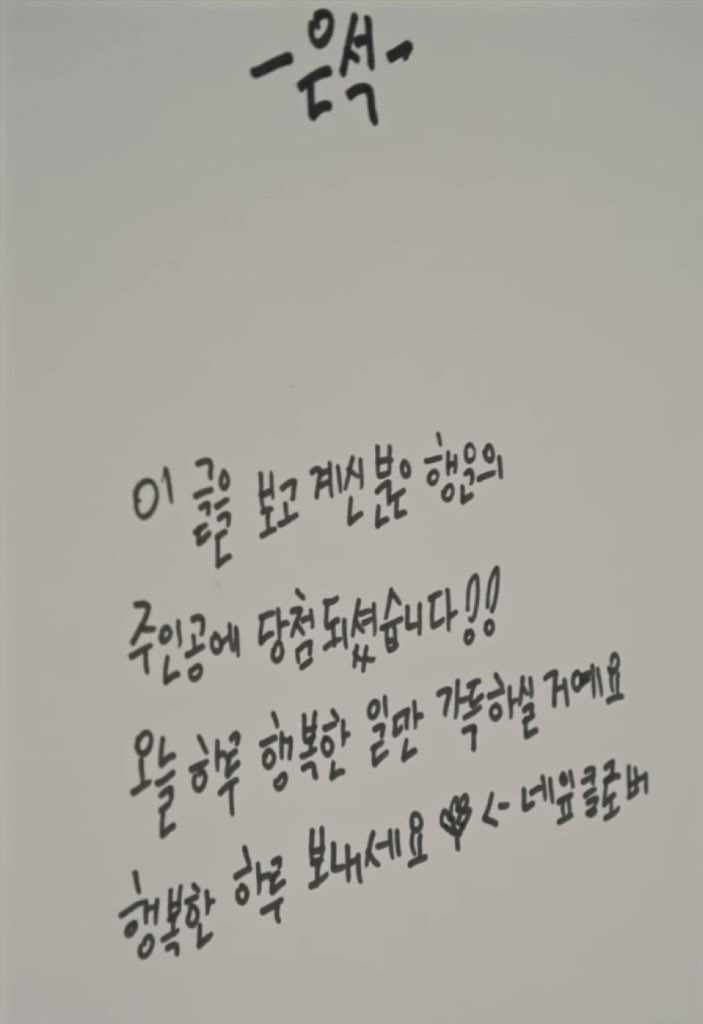 -은석-
이 글을 보고 계신 분은 행운의
주인공에 당첨되셨습니다!!
오늘 하루 행복한 일만 가득하실 거예요
행복한 하루 보내세요 <- 네잎클로버